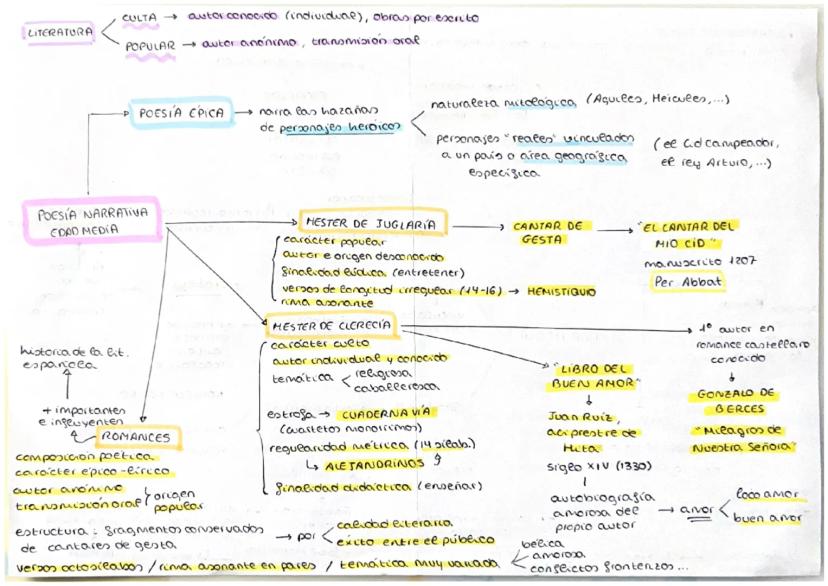 LITERATURA
CULTA → autor conocido (individual), obras por escrito
POPULAR → autor anónimo, transmisión oral
POESÍA ÉPICA → narra las hazañas
de personajes heróicos
naturaleza mitológica (Aquiles, Hércules,...)
personajes "reales" vinculados
a un país o área geográfica
específica
(el Cid campeador,
el rey Arturo,...)
POESÍA NARRATIVA
EDAD MEDIA
MESTER DE JUGLARÍA
carácter popular
autor e origen desconocido
finalidad lúdica (entretener)
versos de longitud irregular (14-16) → HEMISTIQUIO
rima asonante
CANTAR DE
GESTA
"EL CANTAR DEL
MIO CID"
manuscrito 1207
Per Abbat
MESTER DE CLERECÍA
carácter culto
autor individual y conocido
temática
religiosa
caballeresca
estrofa → CUADERNA VÍA
(cuartetos monorrimos)
regularidad métrica (14 sílab.)
↳ ALEJANDRINOS
finalidad didáctica (enseñar)
"LIBRO DEL
BUEN AMOR"
Juan Ruiz,
arcipreste de
Hita
siglo XIV (1330)
autobiografía
amorosa del
propio autor
→ amor
loco amor
buen amor
1º autor en
romance castellano
conocido
GONZALO DE
BERCEO
"Milagros de
Nuestra Señora"
historia de la lit.
española
+ importantes
e influyentes
ROMANCES
composición poética
carácter épico-lírico
autor anónimo
transmisión oral
origen
popular
estructura: fragmentos conservados
de cantares de gesta
→ por
calidad literaria
éxito entre el público
versos octosílabos / rima asonante en pares / temática muy variada
bélica
amorosa
conflictos fronterizos...